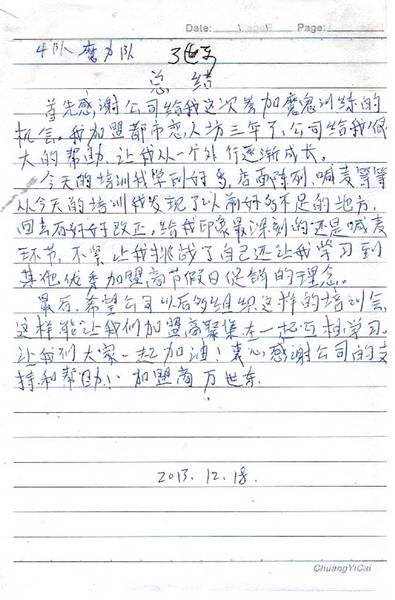 Date: Page:
4队 魔力队 万世东
总 结
首先感谢公司给我这次参加魔鬼训练的
机会。我加盟都市恋人坊三年了,公司给我很
大的帮助,让我从一个外行逐渐成长。
今天的培训我学到好多,店面陈列,喊麦等等
从今天的培训我发现了以前好多不足的地方,
回去后好好改正。给我印象最深刻的还是喊麦
环节,不紧让我挑战了自己还让我学习到
其他优秀加盟商节假日促销的理念。
最后,希望公司以后多组织这样的培训会,
这样能让我们加盟商聚集在一起互相学习。
让我们大家一起加油!衷心感谢公司的支
持和帮助!! 加盟商 万世东.
2013.12.18.
ChuangYiCai